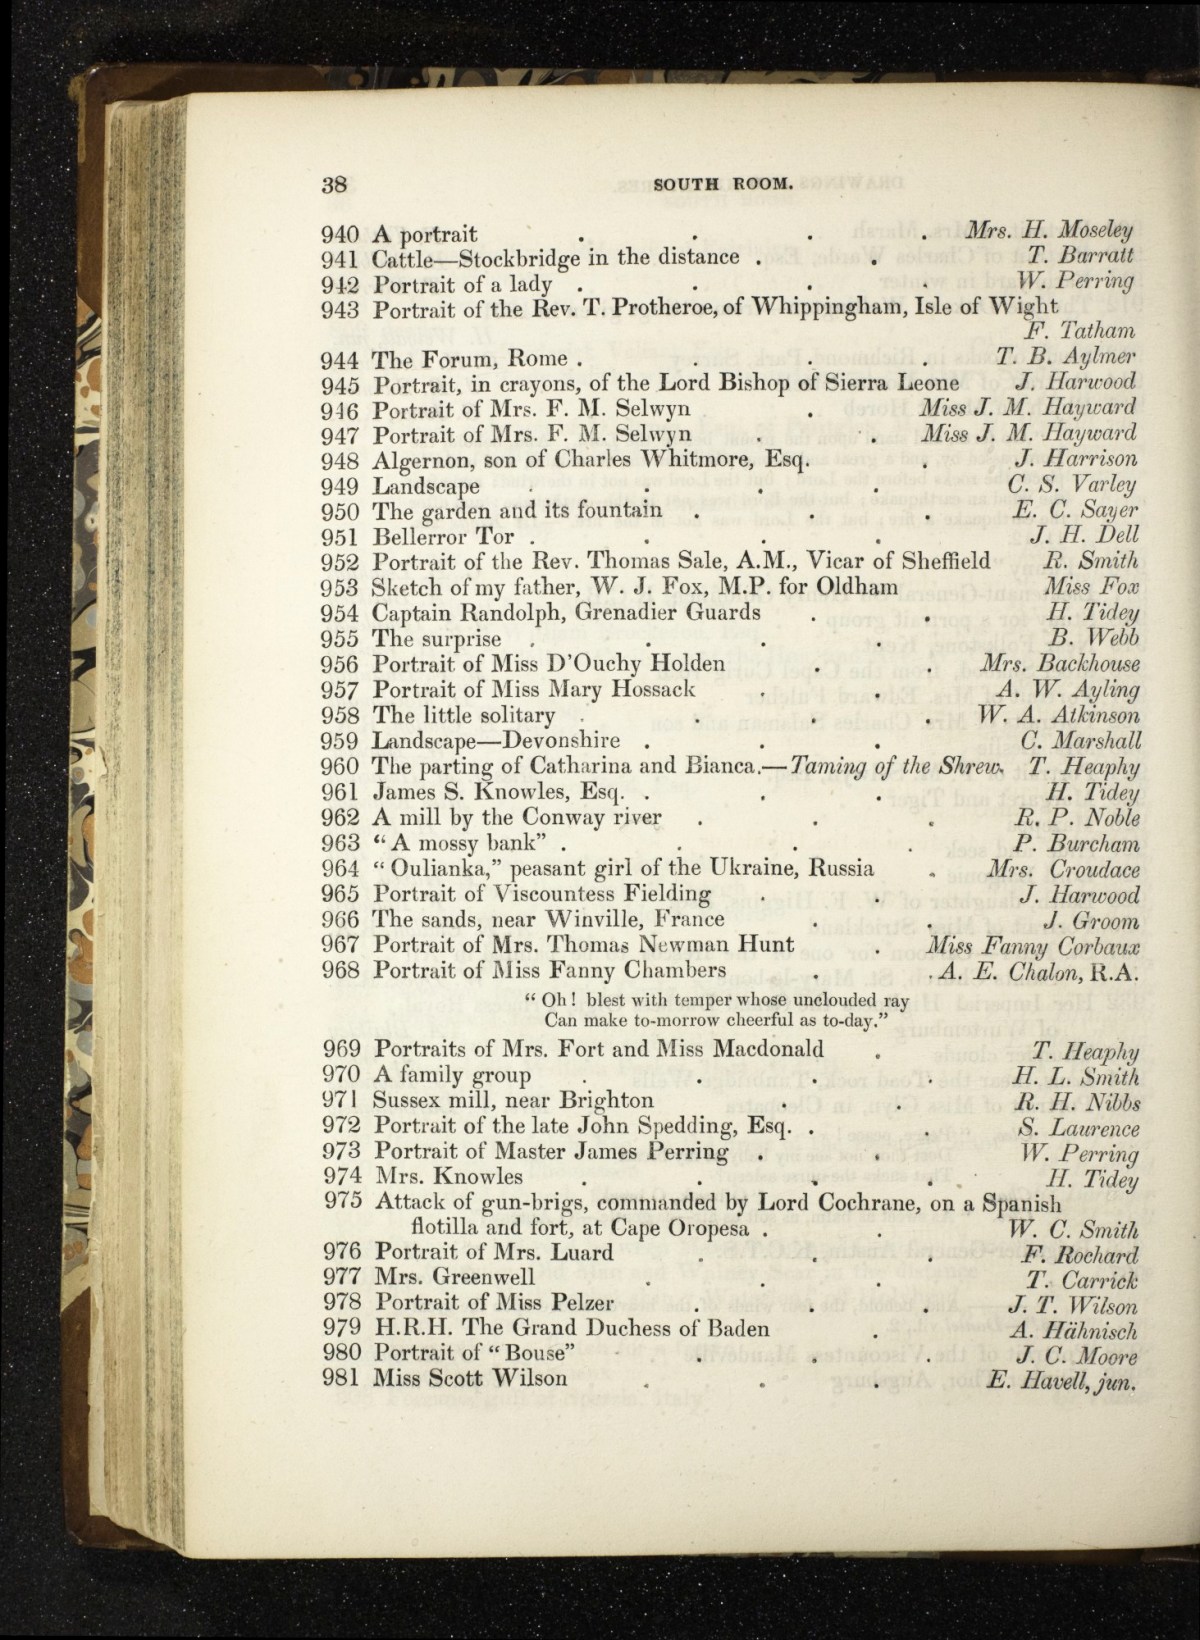 38 SOUTH ROOM.
940 A portrait . . . . Mrs. H. Moseley
941 Cattle—Stockbridge in the distance . . T. Barratt
942 Portrait of a lady . . . . W. Perring
943 Portrait of the Rev. T. Protheroe, of Whippingham, Isle of Wight
F. Tatham
944 The Forum, Rome . . . . T. B. Aylmer
945 Portrait, in crayons, of the Lord Bishop of Sierra Leone J. Harwood
946 Portrait of Mrs. F. M. Selwyn . Miss J. M. Hayward
947 Portrait of Mrs. F. M. Selwyn . . Miss J. M. Hayward
948 Algernon, son of Charles Whitmore, Esq. . J. Harrison
949 Landscape . . . . C. S. Varley
950 The garden and its fountain . . . E. C. Sayer
951 Bellerror Tor . . . . J. H. Dell
952 Portrait of the Rev. Thomas Sale, A.M., Vicar of Sheffield R. Smith
953 Sketch of my father, W. J. Fox, M.P. for Oldham Miss Fox
954 Captain Randolph, Grenadier Guards . . H. Tidey
955 The surprise . . . . B. Webb
956 Portrait of Miss D'Ouchy Holden . . Mrs. Backhouse
957 Portrait of Miss Mary Hossack . . A. W. Ayling
958 The little solitary . . . . W. A. Atkinson
959 Landscape—Devonshire . . . C. Marshall
960 The parting of Catharina and Bianca.—Taming of the Shrew. T. Heaphy
961 James S. Knowles, Esq. . . . H. Tidey
962 A mill by the Conway river . . . R. P. Noble
963 “A mossy bank” . . . . P. Burcham
964 “Oulianka,” peasant girl of the Ukraine, Russia . Mrs. Croudace
965 Portrait of Viscountess Fielding . . J. Harwood
966 The sands, near Winville, France . . J. Groom
967 Portrait of Mrs. Thomas Newman Hunt . Miss Fanny Corbaux
968 Portrait of Miss Fanny Chambers . . A. E. Chalon, R.A.
“Oh! blest with temper whose unclouded ray
Can make to-morrow cheerful as to-day.”
969 Portraits of Mrs. Fort and Miss Macdonald . T. Heaphy
970 A family group . . . . H. L. Smith
971 Sussex mill, near Brighton . . R. H. Nibbs
972 Portrait of the late John Spedding, Esq. . . S. Laurence
973 Portrait of Master James Perring . . W. Perring
974 Mrs. Knowles . . . . H. Tidey
975 Attack of gun-brigs, commanded by Lord Cochrane, on a Spanish
flotilla and fort, at Cape Oropesa . . W. C. Smith
976 Portrait of Mrs. Luard . . . F. Rochard
977 Mrs. Greenwell . . . T. Carrick
978 Portrait of Miss Pelzer . . . J. T. Wilson
979 H.R.H. The Grand Duchess of Baden . A. Hähnisch
980 Portrait of “Bouse” . . . J. C. Moore
981 Miss Scott Wilson . . . E. Havell, jun.